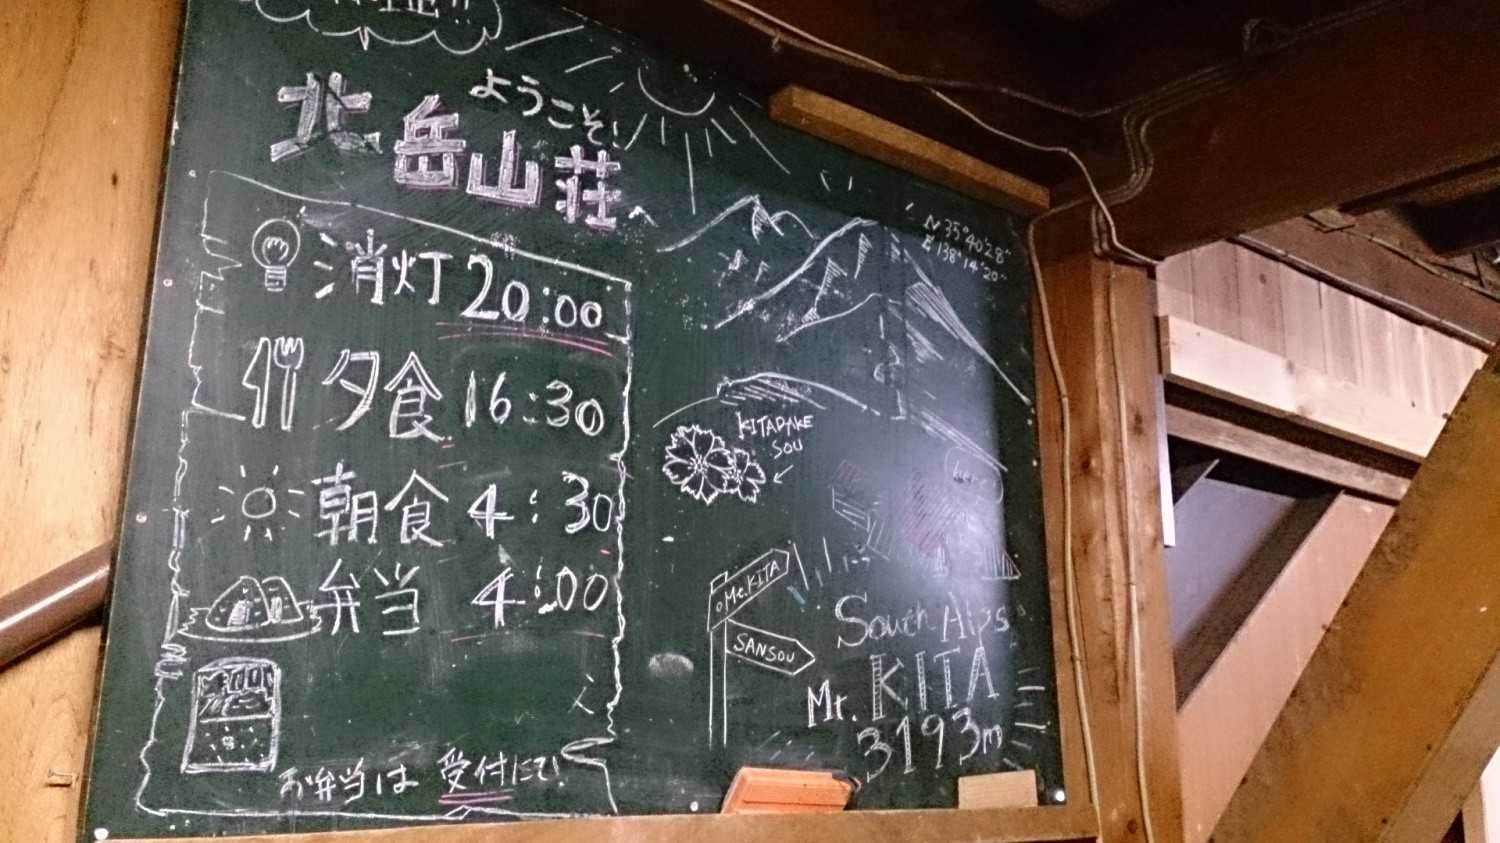 ようこそ!
北岳山荘
消灯 20:00
夕食 16:30
朝食 4:30
弁当 4:00
お弁当は 受付にて!
N 35°40'28"
E 138°14'20"
KITADAKE
SOU
Mt.KITA
SANSOU
South Alps
Mt. KITA
3193m